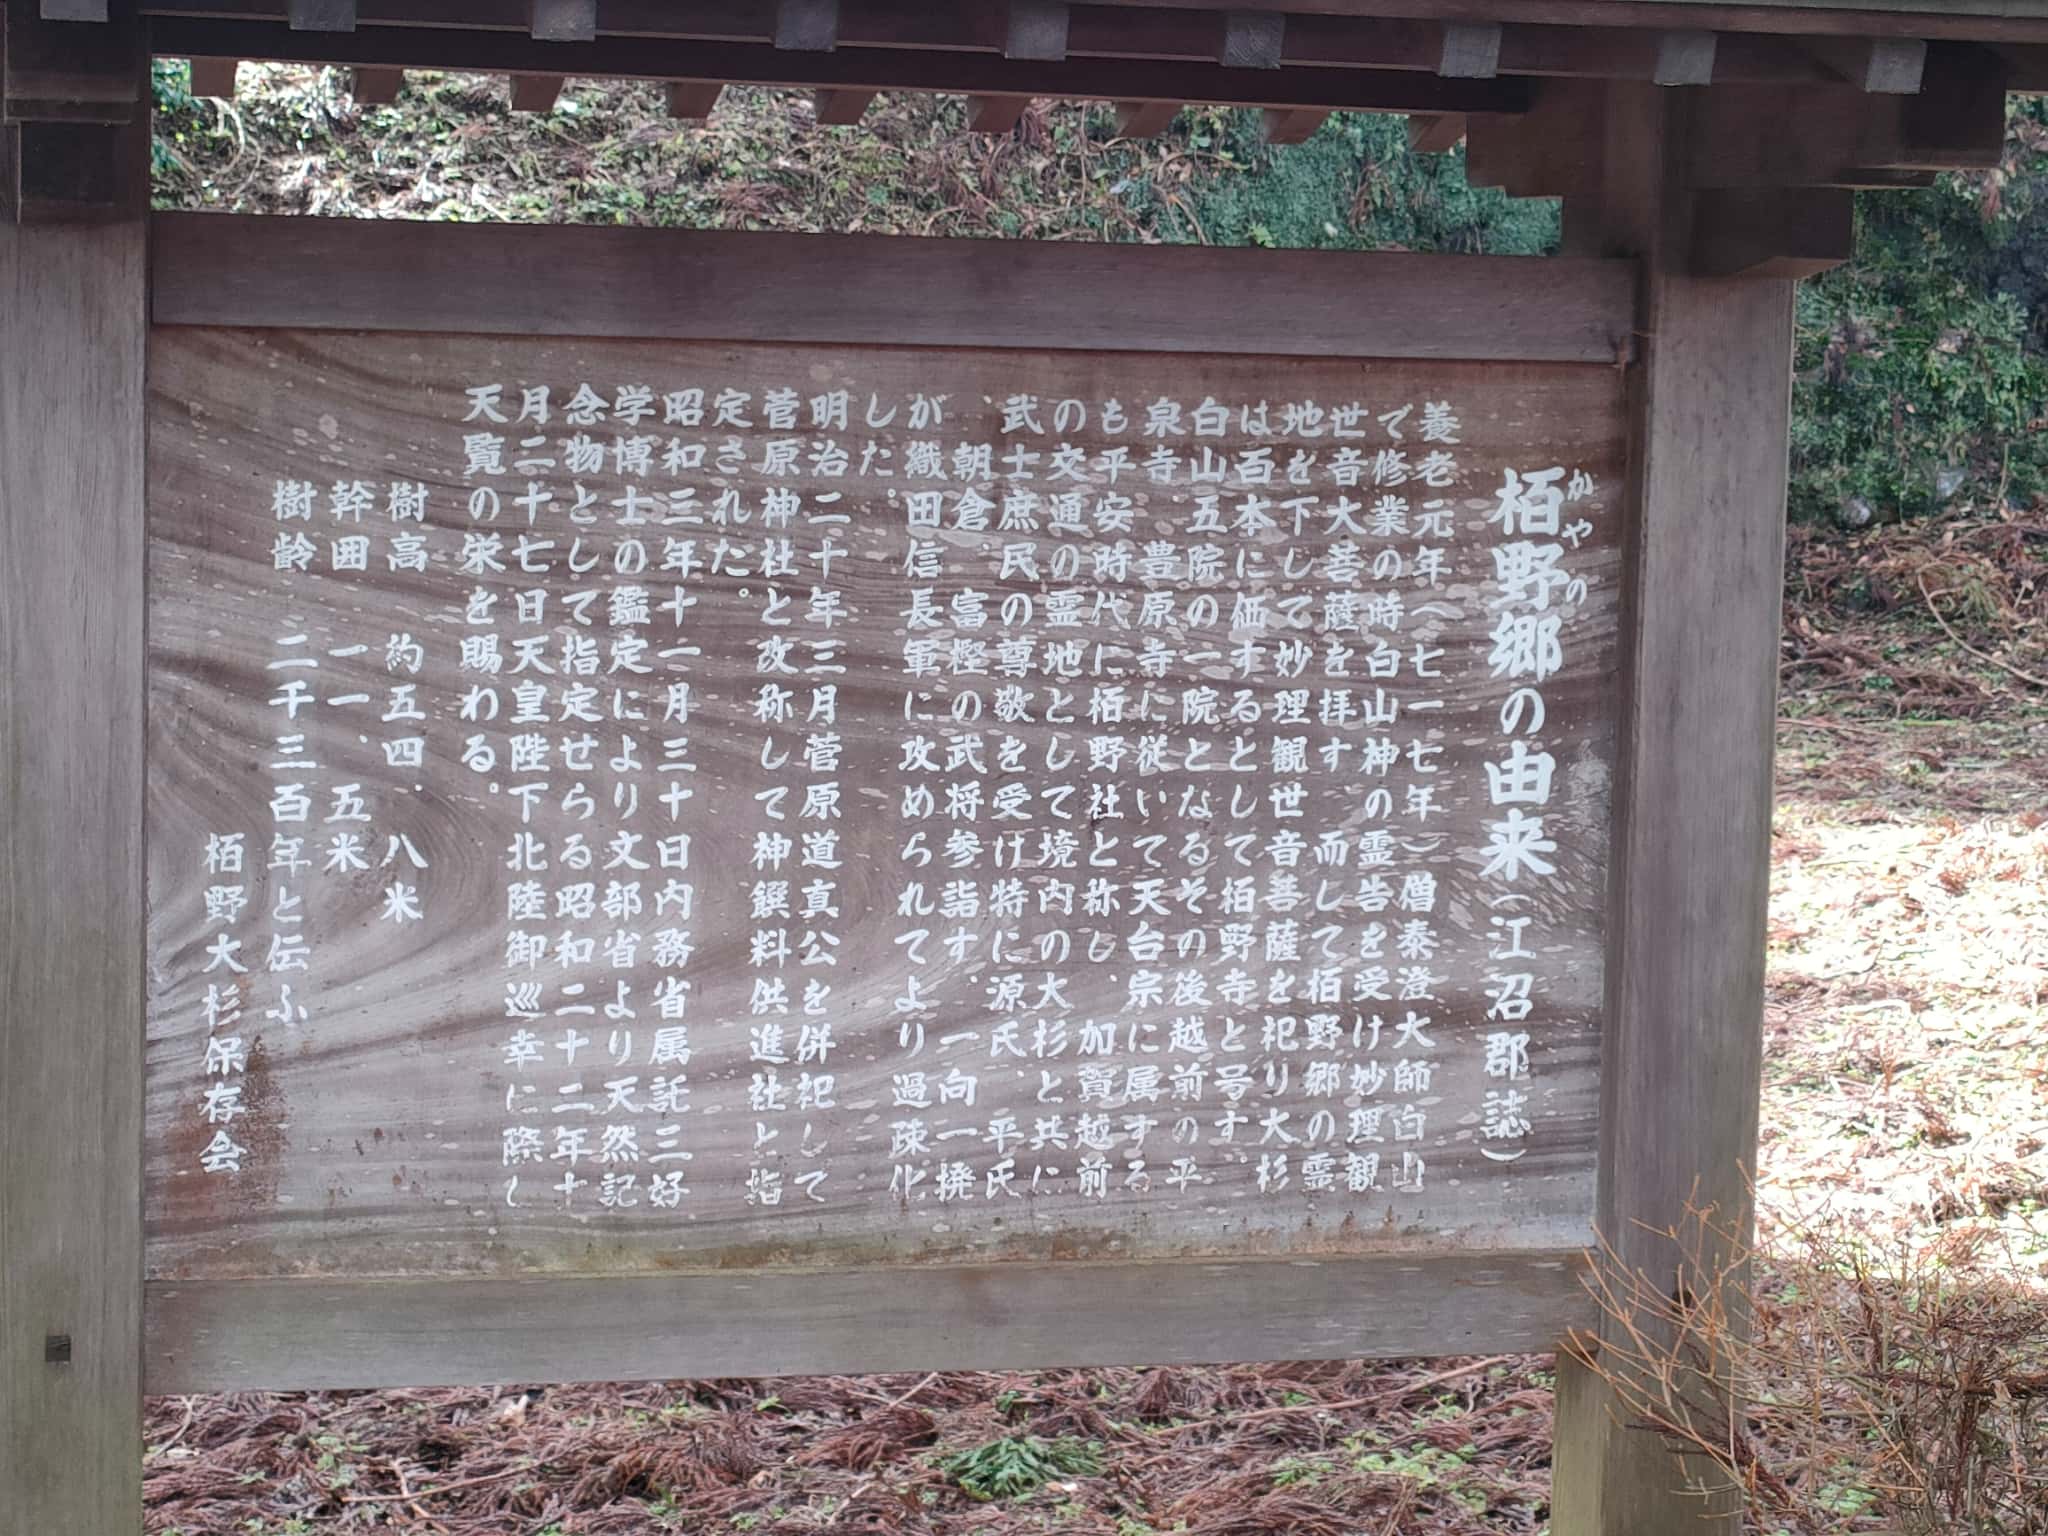 栢野郷の由来(江沼郡誌)
かやの
養老元年(七一七年)僧泰澄大師白山
で修業の時白山神の霊告を受け妙理観
世音大菩薩を拝す 而して栢野郷の霊
地を下して妙理観世音菩薩を祀り大杉
は百本に価するとして栢野寺と号す。
白山五院の一院となるその後越前の平
泉寺、豊原寺に従いて天台宗に属する
も平安時代に栢野社と称し、加賀越前
の交通の霊地として境内の大杉と共に
武士庶民の尊敬を受け特に源氏、平氏
、朝倉、富樫の武将参詣す、一向一揆
が織田信長軍に攻められてより過疎化
した。
明治二十年三月菅原道真公を併祀して
菅原神社と改称して神饌料供進社と指
定された。
昭和三年十一月三十日内務省属託三好
学博士の鑑定により文部省より天然記
念物として指定せらる昭和二十二年十
月二十七日天皇陛下北陸御巡幸に際し
天覧の栄を賜わる。
樹高 約五四.八米
幹囲 一一、五米
樹齢 二千三百年と伝ふ
栢野大杉保存会